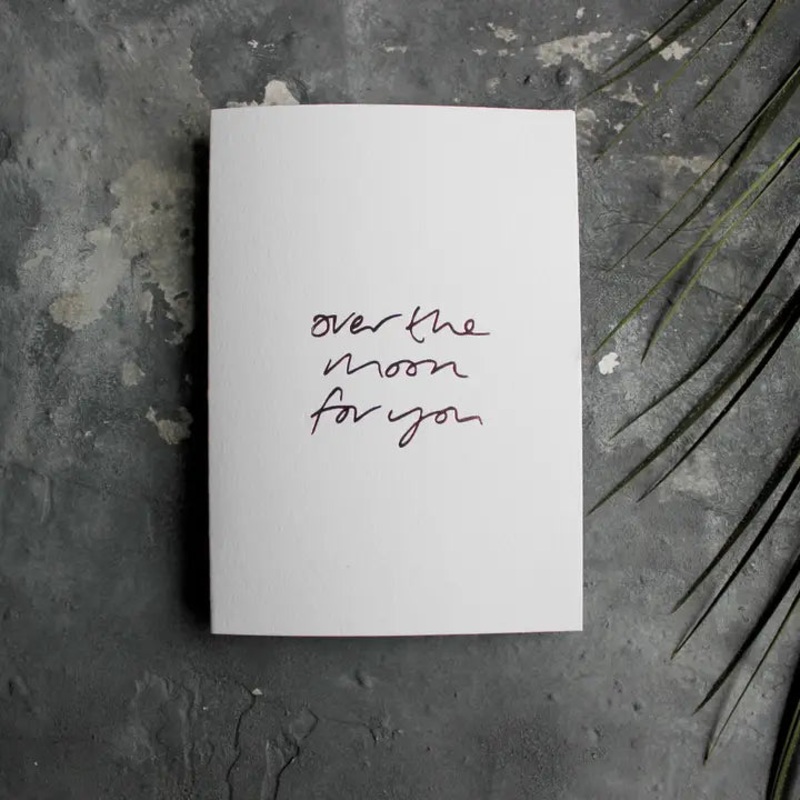 over the
moon
for you